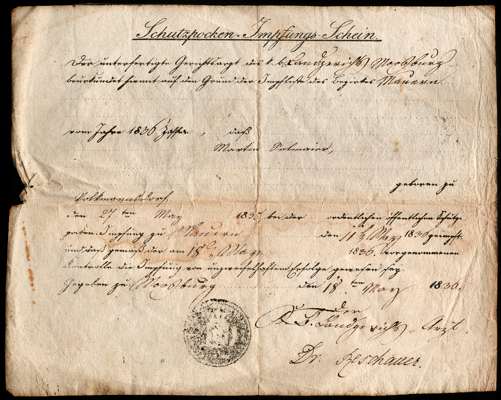 Schutzpocken-Impfungs-Schein.
Der unterfertigte Gerichtsarzt des k. b. Landgerichts Moosburg
beurkundet hiermit auf den Grund der Impfliste des Bezirkes Mauern
vom Jahre 1836 daß
Martin
geboren zu
Volkmannsdorf
den 27ten May 183 bei der ordentlichen öffentlichen Schutzpo-
Impfung zu Mauern den 11t May 1836 geimpft
und daß gemäß der am 18t May 1836. vorgenommenen
Controlle die Impfung von unzweifelhaftem Erfolge gewesen sey.
Gegeben zu Moosburg den 18t May 1836.
Der
K. B. Landgerichts-Arzt
Dr. Zeschauer.